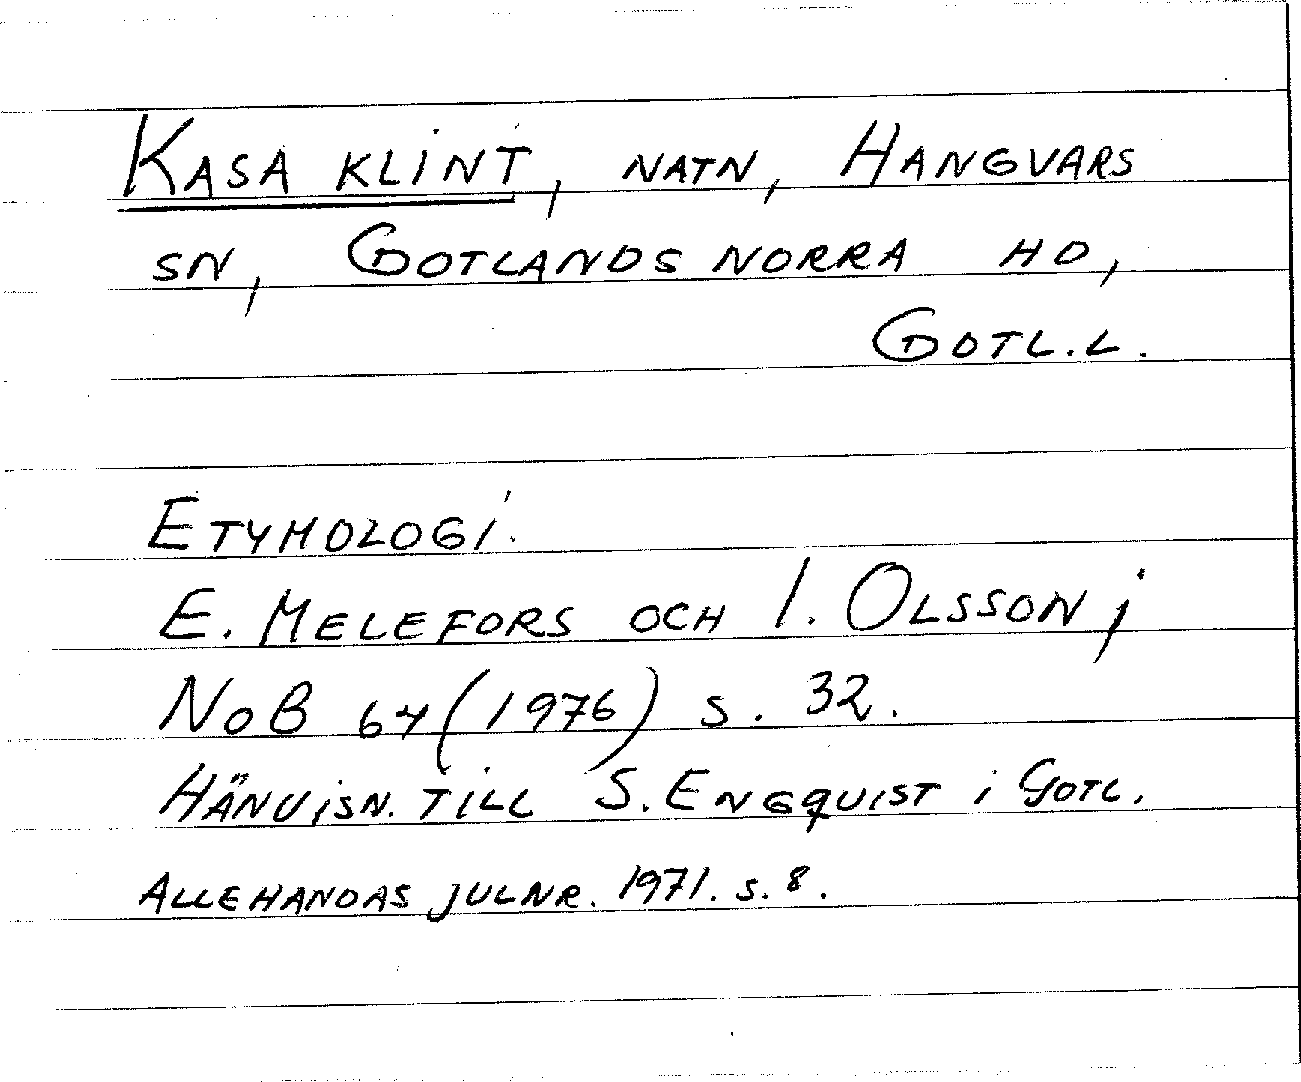 KASA KLINT, NATN, HANGVARS
SN, GOTLANDS NORRA HD,
GOTL.L.
ETYMOLOGI.
E. MELEFORS OCH I. OLSSON i
NoB 64 (1976) s. 32.
HÄNVISN. TILL S. ENGQUIST i GOTL.
ALLEHANDAS JULNR. 1971. s. 8.